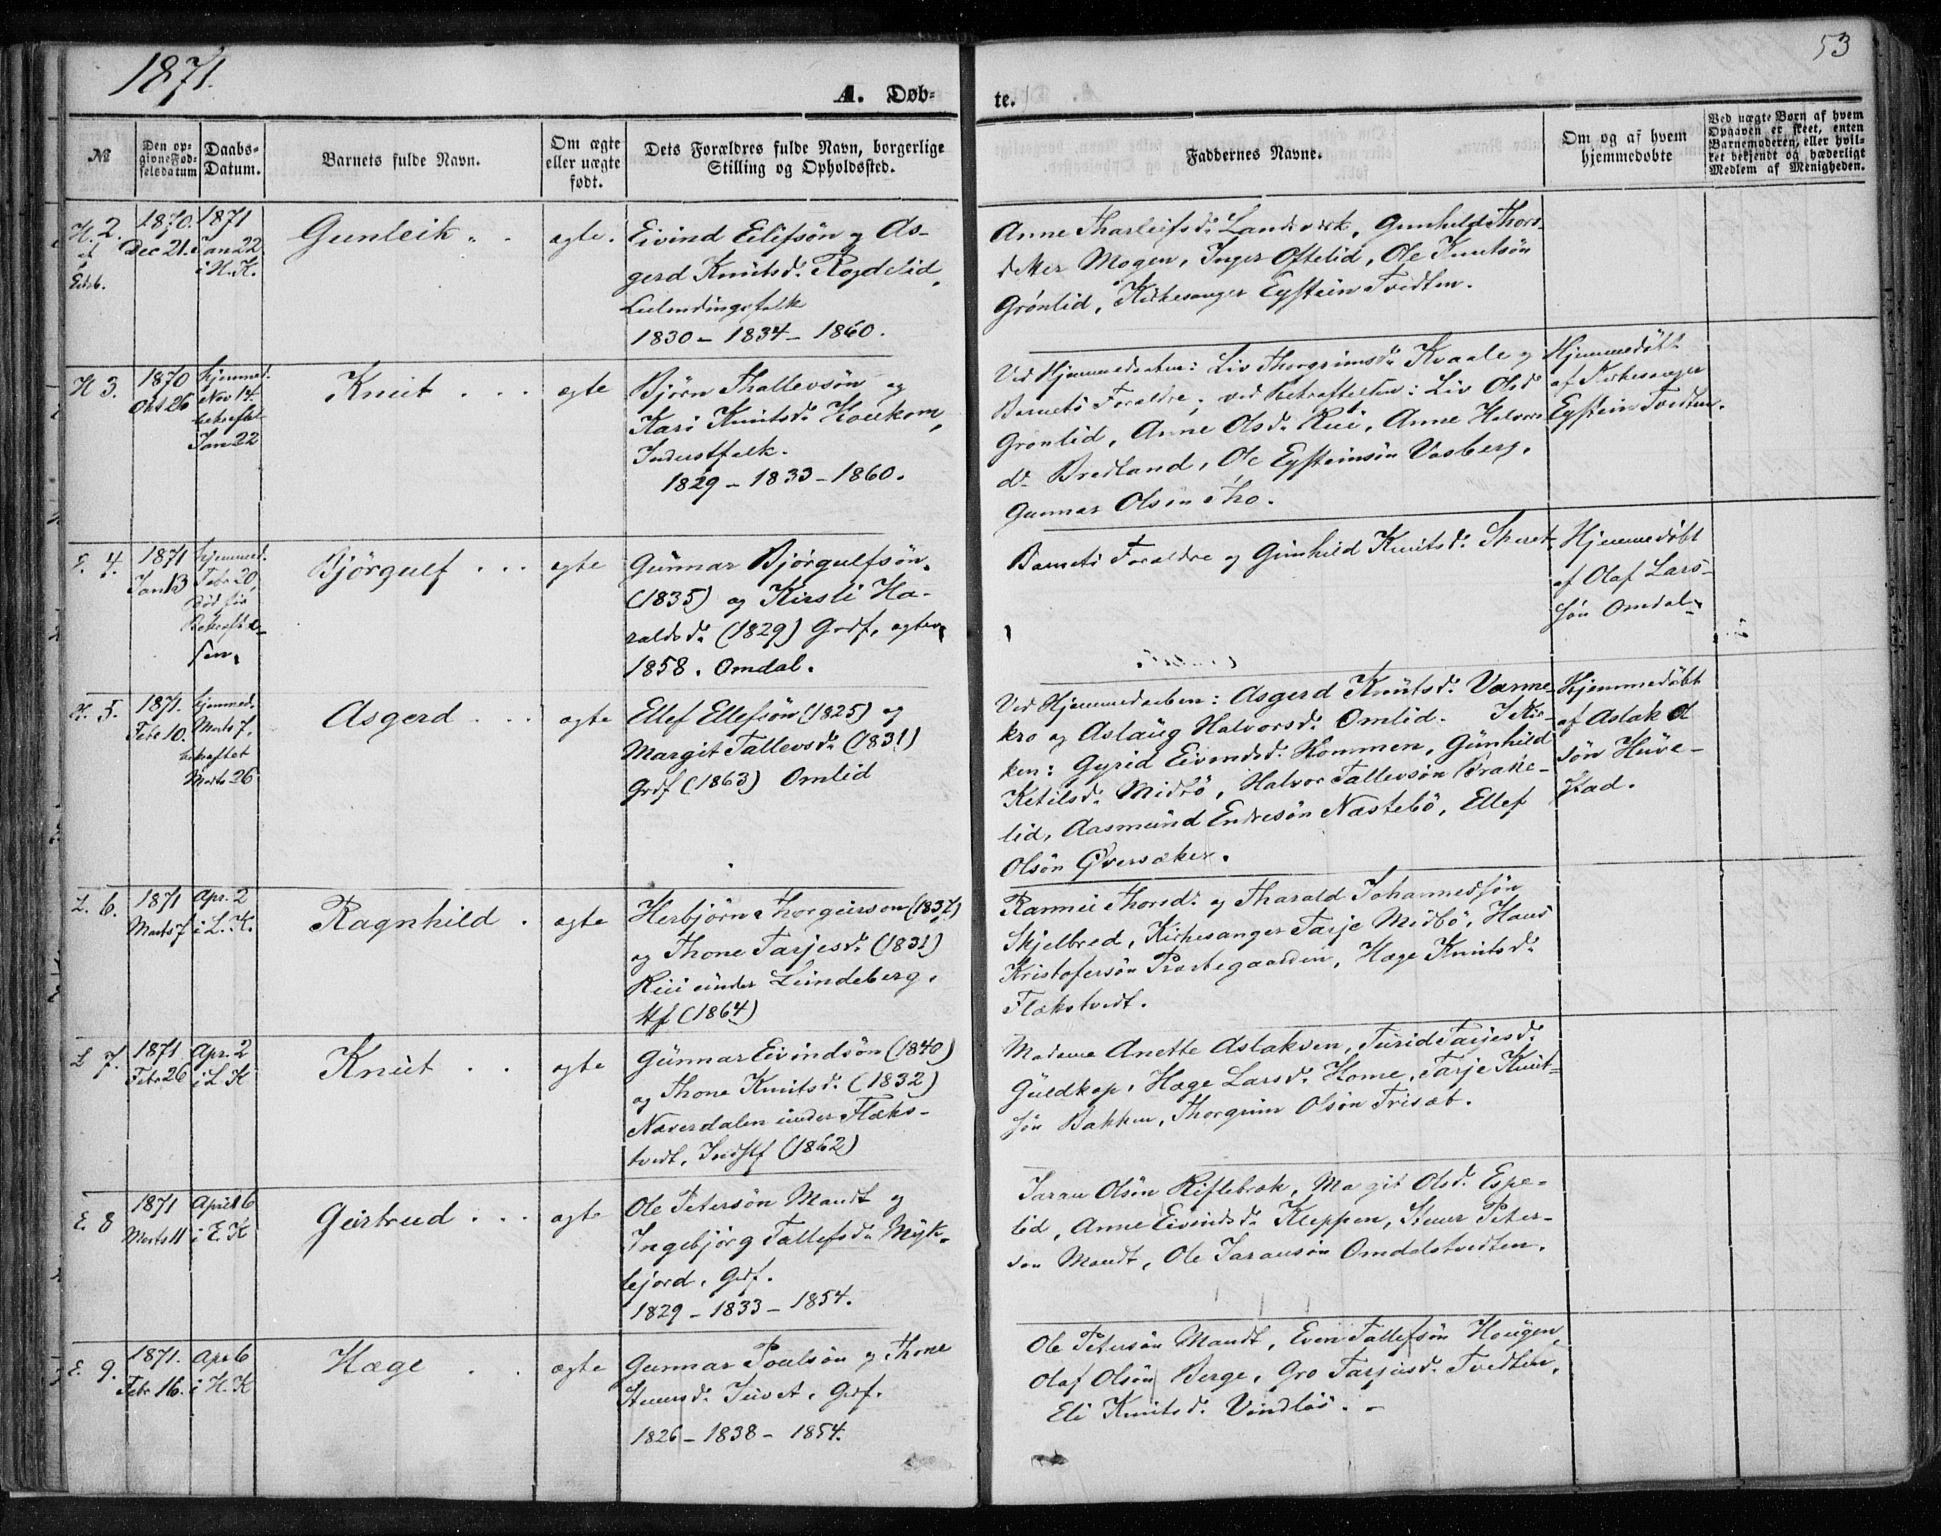 1871.
53
A. Døb-
te.
№
Den op-
givne Fød-
selsdatum
Daabs-
Datum.
Barnets fulde Navn.
Om ægte
eller uægte
født.
Dets Forældres fulde Navn, borgerlige
Stilling og Opholdssted.
Faddernes Navne.
Om og af hvem
hjemmedøbte
Ved uægte Børn af hvem
Opgaven er skeet, enten
Barnemoderen, eller hvil-
ket bekjendt og hæderligt
Medlem af Menigheden.
H. 2.
1870.
Dec 21.
1871
Jan 22
i H. K.
Gunleik
ægte.
Eivind Eilifsön og As-
gerd Knutsd. Rogdelid,
Leilendingsfolk
1830 - 1834 - 1860.
Anne Tharleifsd. Landsverk, Gunhild Thors-
detter Mogen, Inger Oftelid, Ole Knutsön
Grönlid, Kirkesanger Eystein Tvedten.
H 3.
1870
Okt 26
hjemmed.
Nov 14.
bekræftet
Jan 22
Knut
ægte
Björn Thallevsön og
Kari Knutsd. Houkom,
Inderstfolk.
1829 - 1833 - 1860.
Ved Hjemmedaaben: Liv Thorgrimsd. Kvaale og
Barnets Forældre; ved Bekræftelsen: Liv Olsd.
Grönlid, Anne Olsd. Rui, Anne Halvors
d. Bredland, Ole Eysteinsön Vasberg,
Gunnar Olsen Tho.
Hjemmedöbt
af Kirkesanger
Eystein Tvedten.
E. 4.
1871
Jan 13
hjemmed.
Febr 20,
död før
Bekræftel-
sen.
Björgulf
ægte
Gunnar Björgulfsön
(1835) og Kirsti Ha-
raldsd. (1829) Grdf, ægtev.
1858. Omdal.
Barnets Forældre og Gunhild Knutsd. Skaret.
Hjemmedöbt
af Olaf Lars-
sön Omdal.
H. 5.
1871.
Febr 10.
hjemmed.
Marts 7.
bekræftet
Marts 26
Asgerd
ægte
Ellef Ellefsön (1825) og
Margit Tallevsd. (1831)
Grdf (1863) Omlid
Ved Hjemmedaaben: Asgerd Knutsd. Værme-
kro og Aslaug Halvorsd. Omlid. I Kir-
ken: Gyrid Eivindsd. Hommen, Gunhild
Ketilsd. Midbö, Halvor Tallevsön Brake-
lid, Aasmund Endresön Næstebö, Ellef
Olsön Översaker.
Hjemmedöbt
af Aslak O
sön Huve-
stad.
L. 6.
1871
Marts 7
Apr. 2
i L. K.
Ragnhild
ægte
Herbjörn Thorgeirson (1837)
og Thone Tarjesd. (1831)
Rui under Lundeberg.
Hf (1864)
Rannei Thorsd. og Tharald Johannessön
Skjelbred, Kirkesanger Tarje Midbö, Hans
Kristofersön Præstegaarden, Hæge Knutsd.
Flakstvedt.
L 7.
1871
Febr 26
Apr. 2
i L. K
Knut
ægte
Gunnar Eivindsön (1840)
og Thone Knutsd. (1832)
Næverdalen under Flaks-
tvedt, Indstf (1862)
Madame Anette Aslaksen, Turid Tarjesd.
Guldkop, Hæge Larsd. Home, Tarje Knut-
sön Bakken, Thorgrim Olsön Trisæt.
E. 8
1871
Marts 11
April 6
i E. K
Geirtrud
ægte
Ole Petersön Mandt og
Ingebjörg Tallefsd. Myk-
lejord. Grdf.
1829 - 1833 - 1854.
Jaran Olsön Riflebæk, Margit Olsd. Espe-
lid, Anne Eivindsd. Kleppen, Steinar Peter-
sön Mandt, Ole Jaransön Omdalstvedten.
E. 9.
1871.
Febr 16.
Apr 6
i H. K
Hæge
ægte
Gunnar Poulsön og Thone
Steinersd. Juvet. Grdf.
1826 - 1838 - 1854.
Ole Petersön Mandt, Even Tallefsön Hougen,
Olaf Olsön Berge, Gro Tarjesd. Tvedten,
Eli Knutsd. Vindlös.